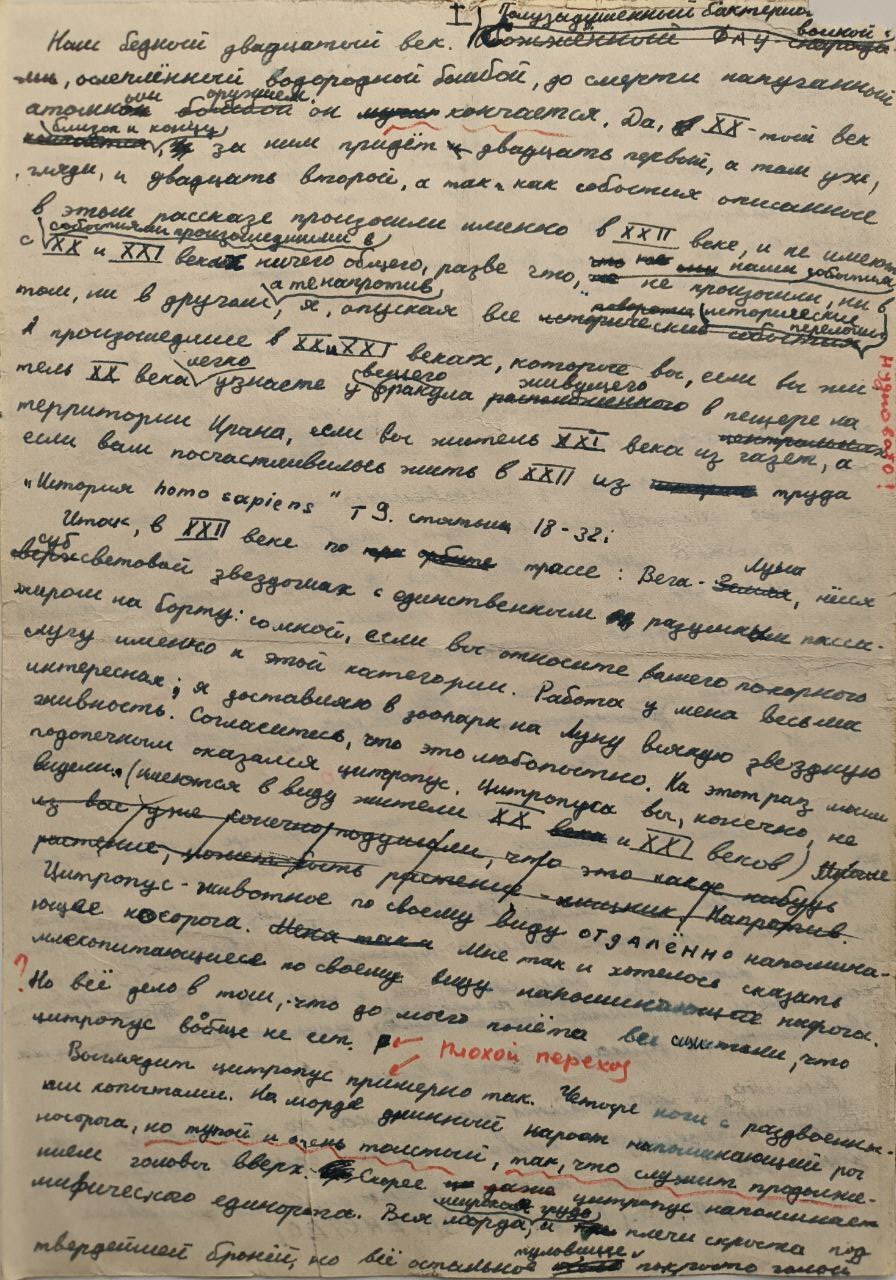 I
Полузадушенный бактерио
войной,
Наш бедный двадцатый век.
, ослеплённый водородной бомбой, до смерти напуганный
атомным оружием, он кончается. Да, XX-тый век
близок к концу, за ним придёт двадцать первый, а там уже,
гляди, и двадцать второй, а так как события описанные
в этом рассказе произошли именно в XXII веке, и не имеют
с событиями произошедшими в
XX и XXI веках ничего общего, разве что, наши события не произошли, ни в
том, ни в другом, а тенапротив, я, опуская все исторические
переломы
произошедшие в XX и XXI веках, которые вы, если вы жи
тель XX века легко узнаете у вещего оракула живущего в пещере на
Нудновато?
территории Ирана, если вы житель XXI века из газет, а
если вам посчастливилось жить в XXII из труда
„История homo sapiens" т 9. статьи 18-32;
Итак, в XXII веке по трассе: Вега - Луна, нёсся
субсветовой звездолёт с единственным разумным пасса-
жиром на борту: со мной, если вы относите вашего покорного
слугу именно к этой категории. Работа у меня весьма
интересная; я доставляю в зоопарк на Луну всякую звездную
живность. Согласитесь, что это любопытно. На этот раз моим
подопечным оказался цитропус. Цитропуса вы, конечно, не
видели. (имеются в виду жители XX и XXI веков)
из вас уже конечно подумали, что это какое нибудь
растение, может быть растение - хищник. Напротив.
Цитропус - животное по своему виду отдалённо напомина-
ющее носорога. Мне так и хотелось сказать
млекопитающиеся по своему виду напоминающее нарога.
?
Но всё дело в том, что до моего полёта все считали, что
цитропус вобще не ест.
плохой переход
Выглядит цитропус примерно так. Четыре ноги с раздвоенны-
ми копытами. На морде длинный нарост напоминающий рог
носорога, но тупой и очень толстый, так, что служит продолже-
нием головы вверх. Скорее даже цитропус напоминает
мифического единорога. Вся морда, широкая грудь, и плечи скрыта под
твердейшей бронёй, но всё остальное туловище покрыто голой